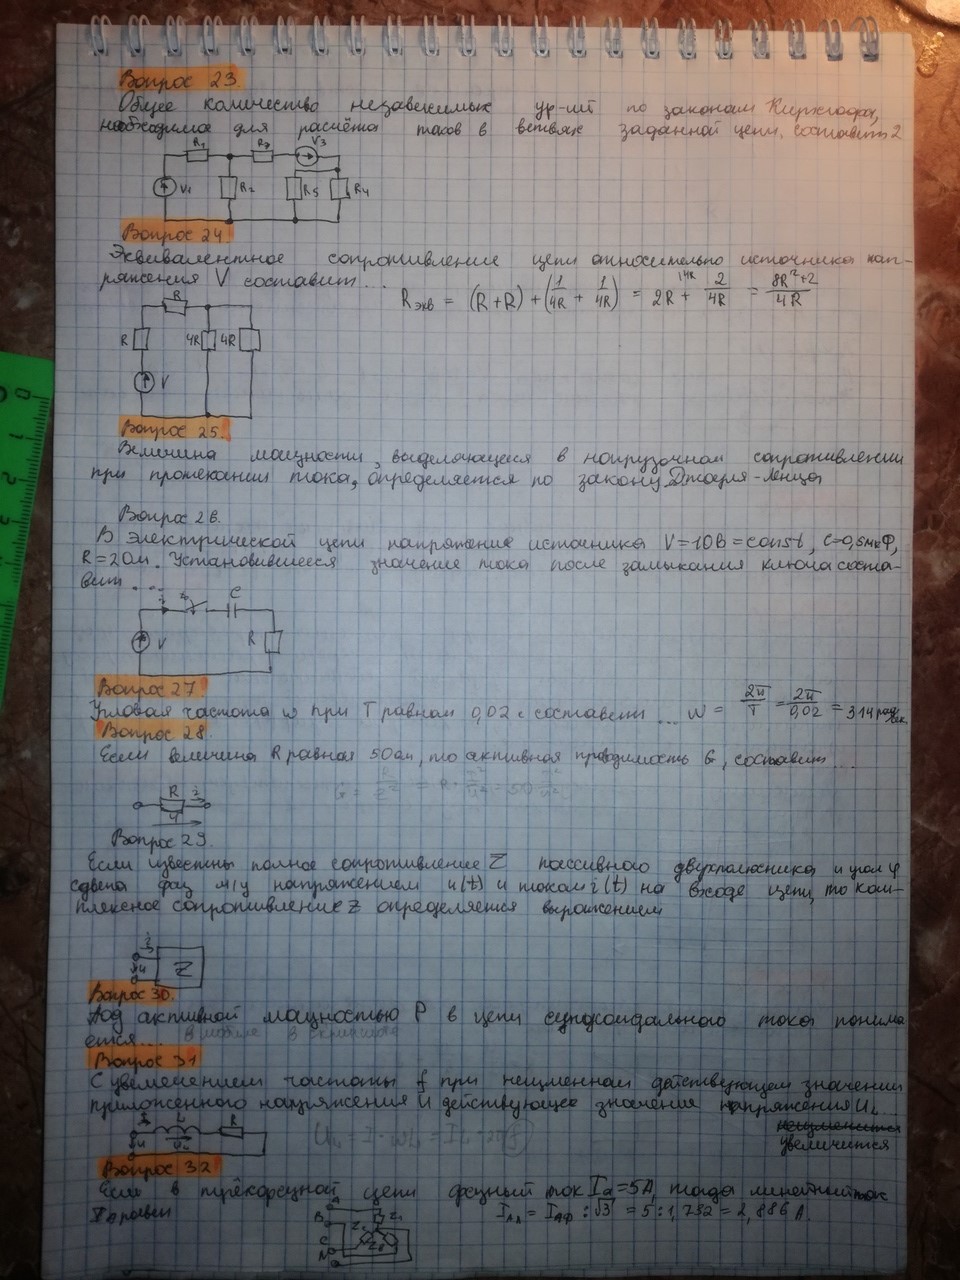 Вопрос 23.
Общее количество независимых ур-ий по законам Кирхгофа,
необходимое для расчёта токов в ветвях заданной цепи, составит 2
R1 R3 V3
V1 R2 R5 R4
Вопрос 24.
Эквивалентное сопротивление цепи относительно источника нап-
ряжения V составит...
Rэкв = (R+R)+(1/4R + 1/4R) = 2R + 2/4R = 8R²+2/4R
R
R 4R 4R
V
Вопрос 25.
Величина мощности, выделяющейся в нагрузочном сопротивлении
при протекании тока, определяется по закону Джоуля-Ленца
Вопрос 26.
В электрической цепи напряжение источника V=10В=const, C=0,5мкФ,
R=2Ом. Установившееся значение тока после замыкания ключа соста-
вит...
i C
V R
Вопрос 27
Угловая частота ω при T равном 0,02 с составит ... ω = 2π/T = 2π/0,02 = 314 рад/сек
Вопрос 28.
Если величина R равна 50 Ом, то активная проводимость G, составит...
R i
u
Вопрос 29.
Если известны полное сопротивление Z пассивного двухполюсника и угол φ
сдвига фаз м/у напряжением u(t) и током i(t) на входе цепи, то ком-
плексное сопротивление Z определяется выражением
i
u Z
Вопрос 30.
Под активной мощностью P в цепи синусоидального тока понима
ется...
Вопрос 31
С увеличением частоты f при неизменном действующем значении
приложенного напряжения U действующее значение напряжения UL...
увеличится
i L R
u uL
Вопрос 32
Если в трёхфазной цепи фазный ток Ia=5А, тогда линейный ток
IA равен IАЛ = IАФ : √3 = 5 : 1,732 = 2,886 А.
B
C
N